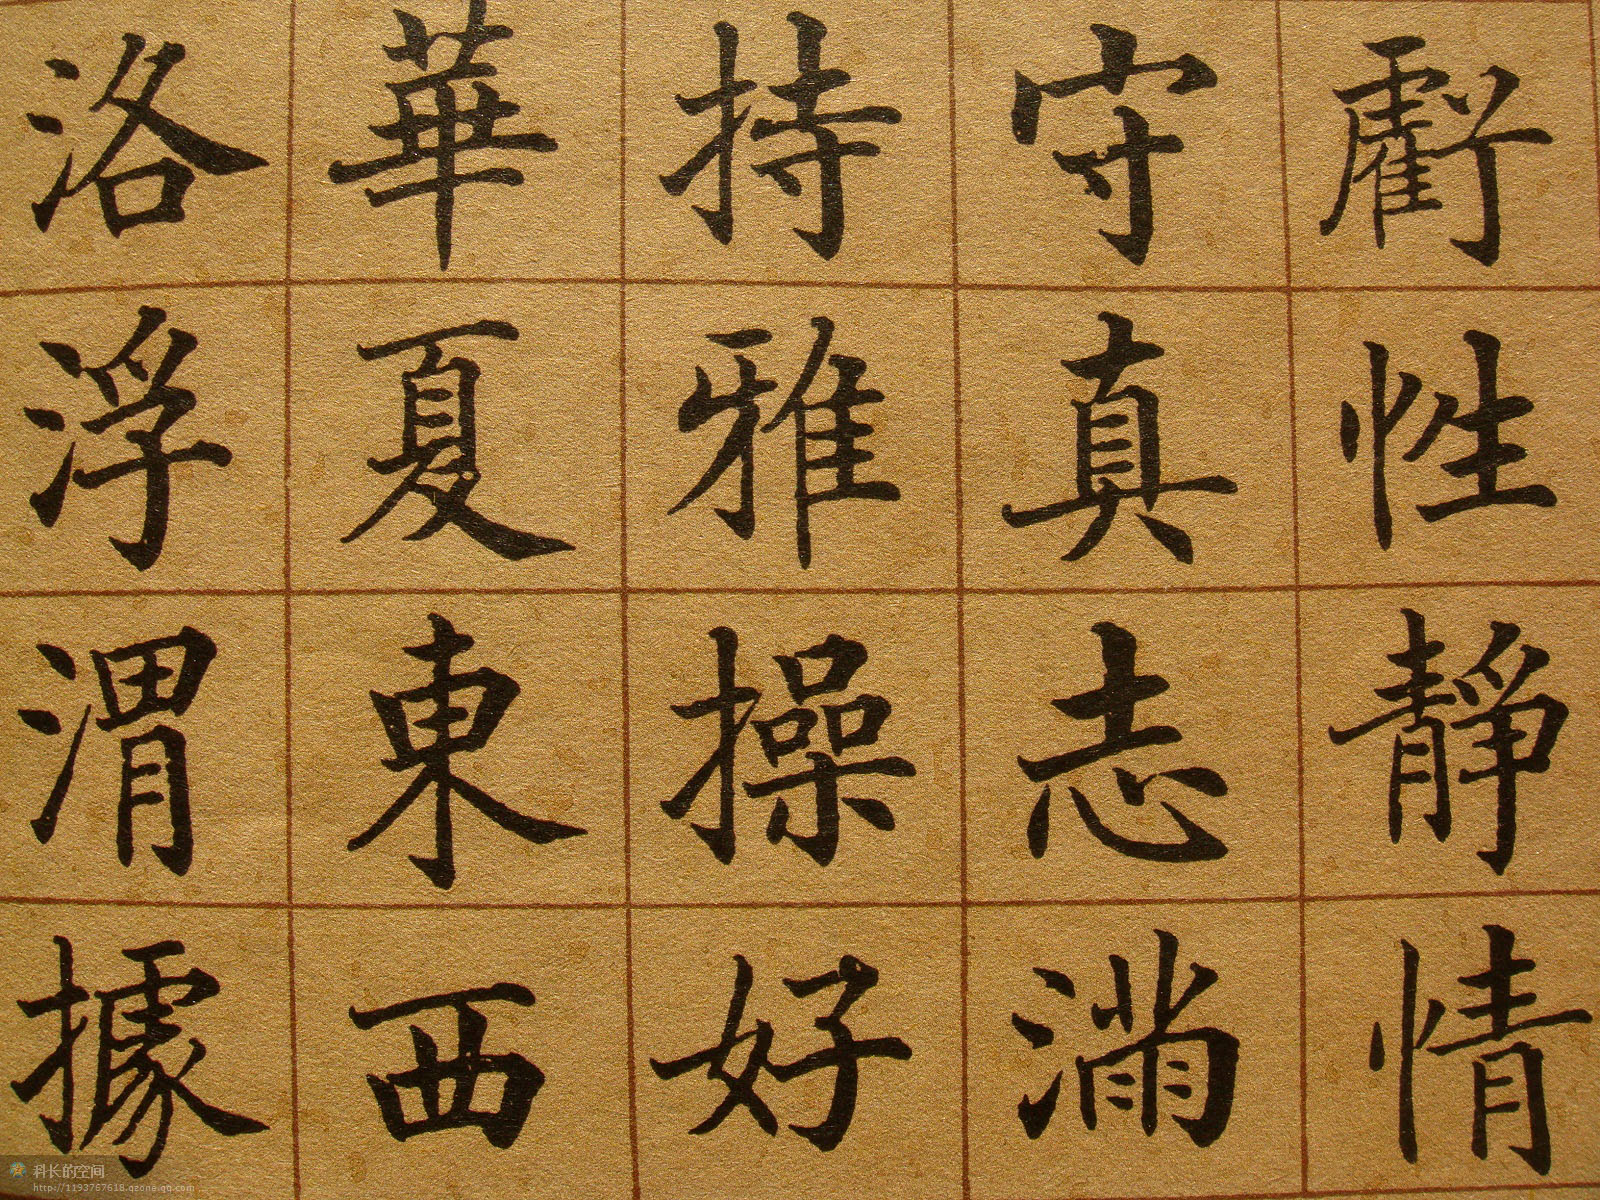 虧性靜情
守真志滿
持雅操好
華夏東西
洛浮渭據
科长的空间
http://1193767618.qzone.qq.com